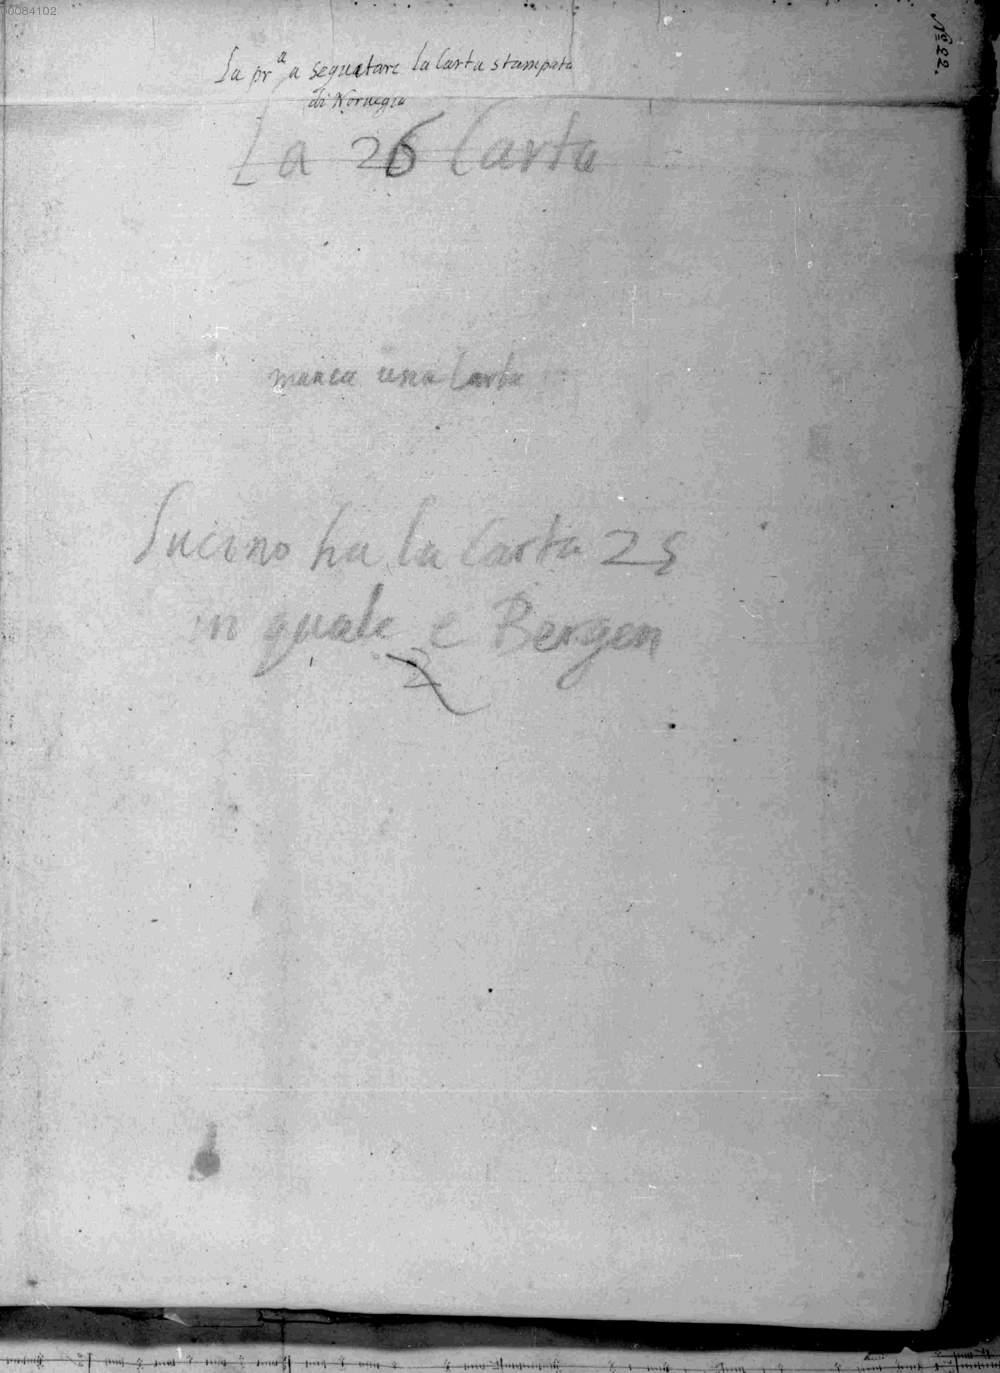 0084102
Nº 22.
La pr.ª a seguitare la Carta stampata
di Noruegia
La 26 Carta
manca una Carta
Lucino ha la Carta 25
in quale e Bergen
2